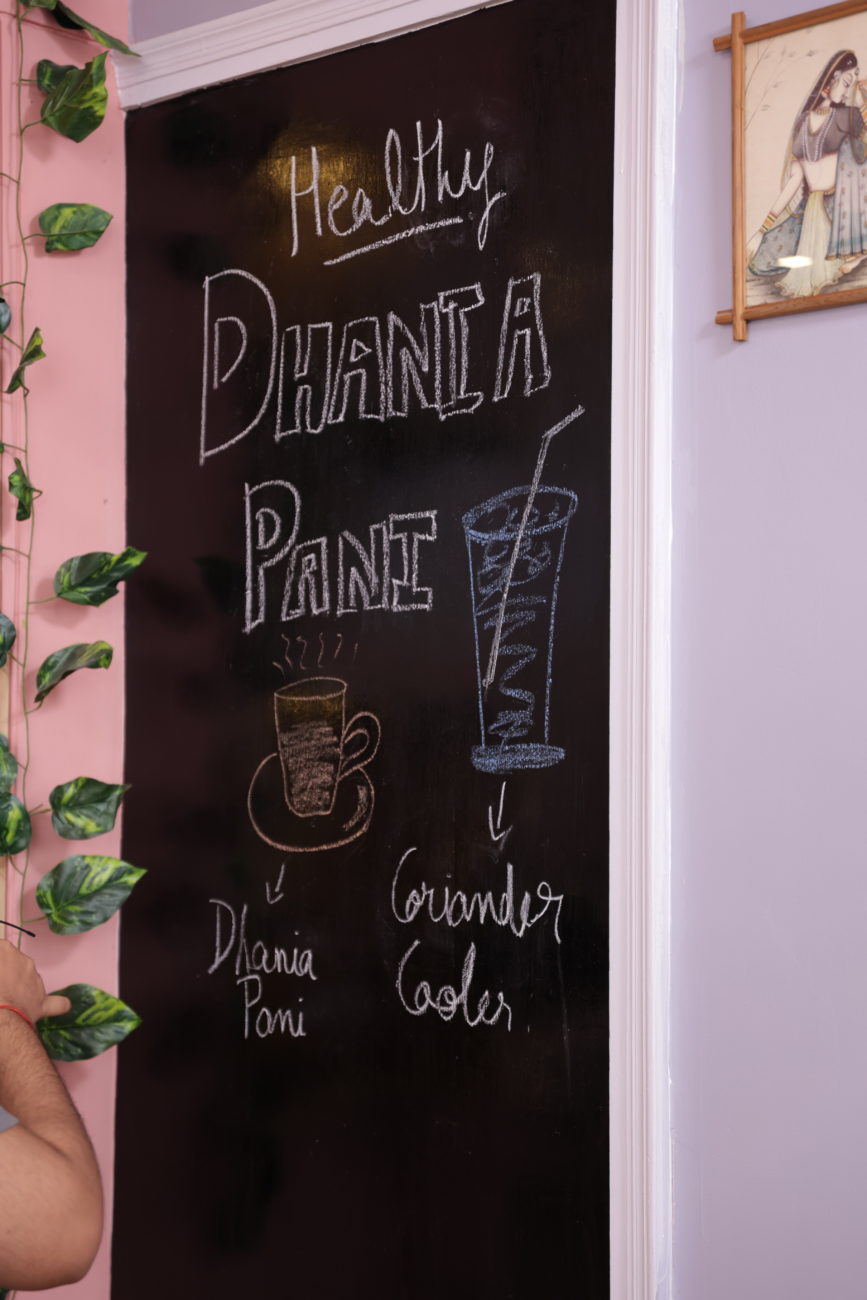 Healthy
DHANIA
PANI
Dhania
Pani
Coriander
Cooler